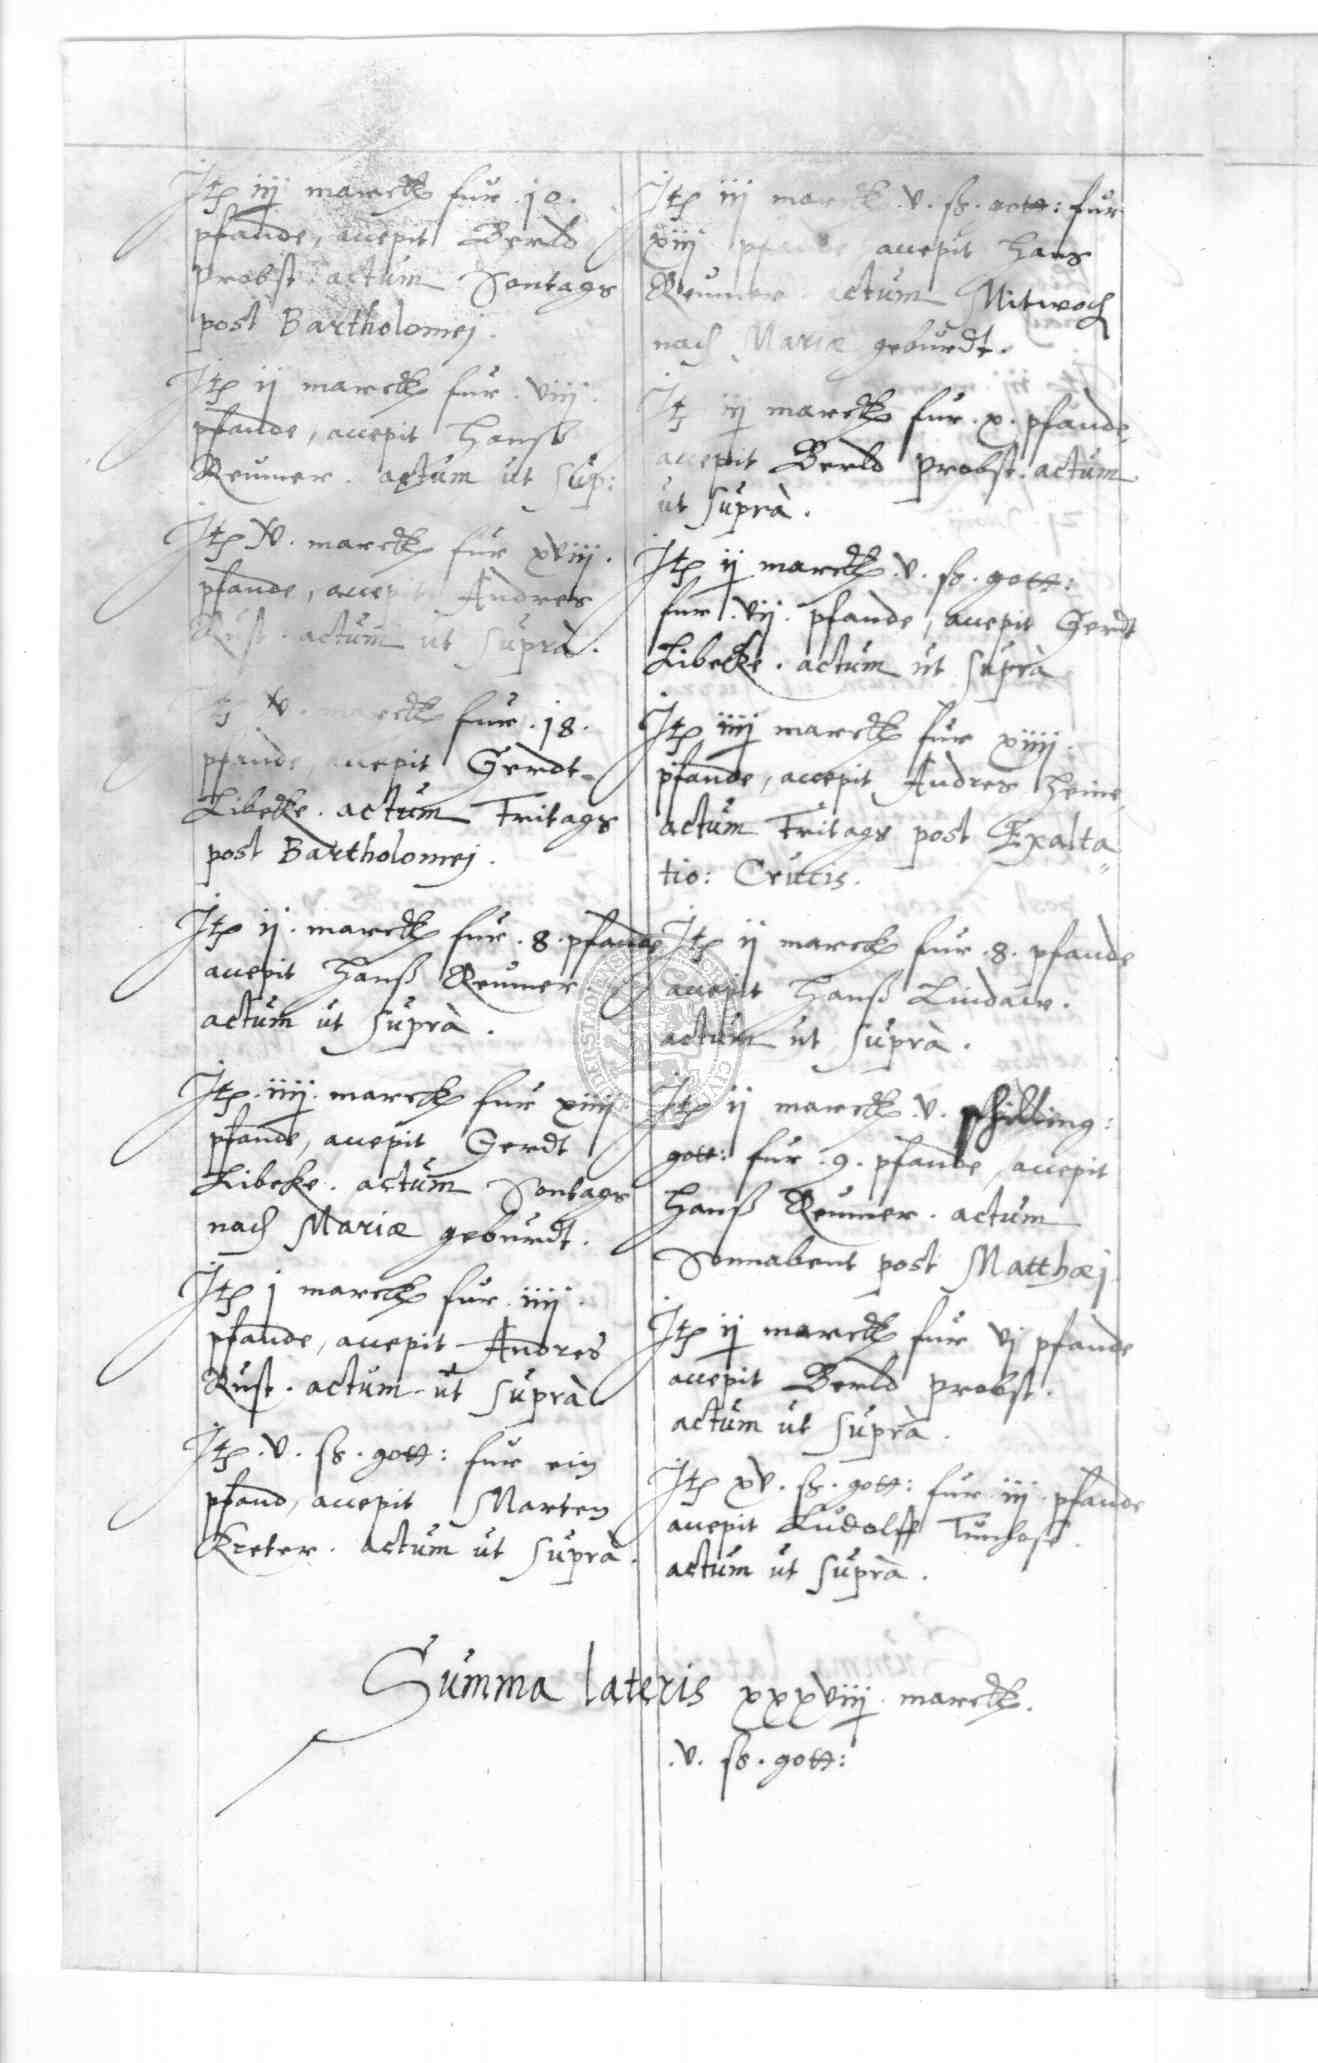 Jtem iij marck fur .10.
pfande, accepit Berld
Probst. actum Sontags
post Bartholomej.
Jtem ij marck fur . viij.
pfande, accepit Hanß
Reumer . actum ut sup:
Jtem v. marck fur xviij.
pfande, accepit Andres
Rust . actum ut suprà.
Jtem v. marck fur .18.
pfande, accepit Gerdt
Libecke . actum Fritags
post Bartholomej.
Jtem ij . marck fur . 8 . pfande
accepit Hanß Reumer.
actum ut suprà .
Jtem . iiij . marck fur xiiij
pfande, accepit Gerdt
Libecke . actum Sontags
nach Mariæ geburdt .
Jtem j marck fur . iiij .
pfande, accepit Andres
Rust . actum ut suprà
Jtem . v . ß . gott: fur ein
pfand, accepit Marten
Kreter . actum ut suprà .
Jtem iij marck . v . ß . gott: fur
xiij pfande accepit Hans
Reumer . actum Mitwoch
nach Mariæ geburdt .
Jtem iij marck fur . x . pfande,
accepit Berld Probst . actum
ut suprà .
Jtem ij marck . v . ß . gott:
fur . vij . pfande, accepit Gerdt
Libecke . actum ut suprà
Jtem iiij marck fur xiiij .
pfande, accepit Andres Heine,
actum Fritags post Exalta
tio: Crucis.
Jtem ij marck fur . 8 . pfande
accepit Hanß Lindaw .
actum ut suprà .
Jtem ij marck . v . schilling:
gott: fur . 9 . pfande, accepit
Hanß Reumer . actum
Sonnabent post Matthæj
Jtem ij marck fur vj pfande
accepit Berld Probst .
actum ut suprà .
Jtem xv . ß . gott: fur iij . pfande
accepit Ludolff
actum ut suprà .
Summa lateris xxxviij marck .
. v . ß . gott: